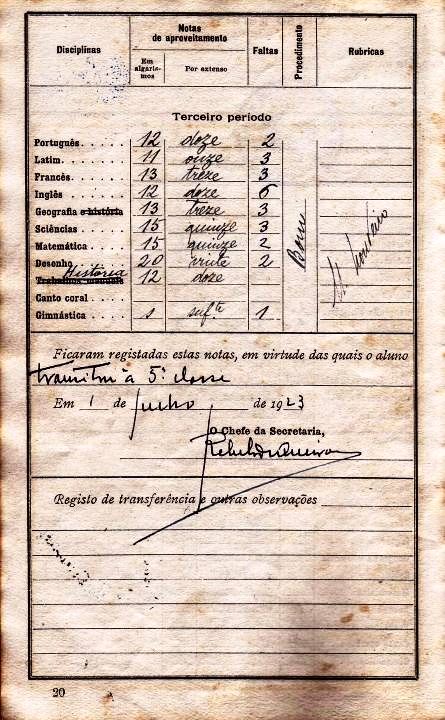 Disciplinas Notas de aproveitamento Faltas Procedimento Rubricas
Em algaris- mos Por extenso
Terceiro período
Português . . . . . 12 doze 2
Latim. . . . . . 11 onze 3
Francês . . . . . 13 treze 3
Inglês . . . . . 12 doze 6
Geografia e história 13 treze 3
Sciências . . . . 15 quinze 3
Matemática . . . . 15 quinze 2
Desenho 20 vinte 2
História 12 doze
Canto coral . . . .
Gimnástica . . . . s sufte 1
Bom
Ficaram registadas estas notas, em virtude das quais o aluno
transitou à 5ª classe
Em 1 de Julho de 1923
O Chefe da Secretaria,
Registo de transferência e outras observações
20